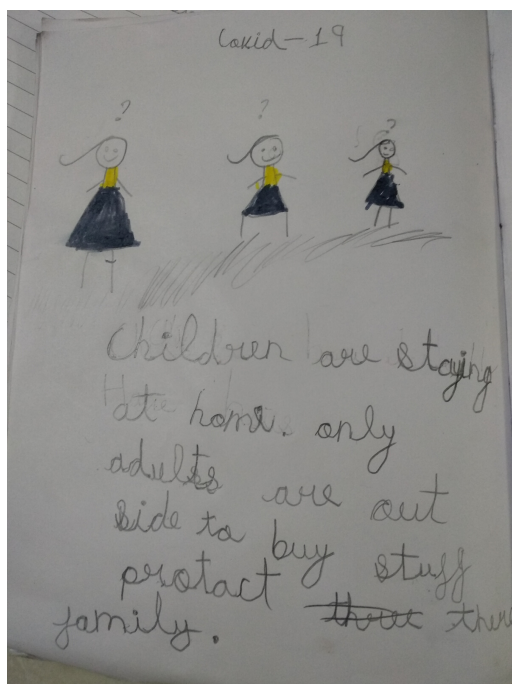 Cokid-19
? ? ?
children are staying
at home. only
adults are out
side to buy stuff
protact there
family.